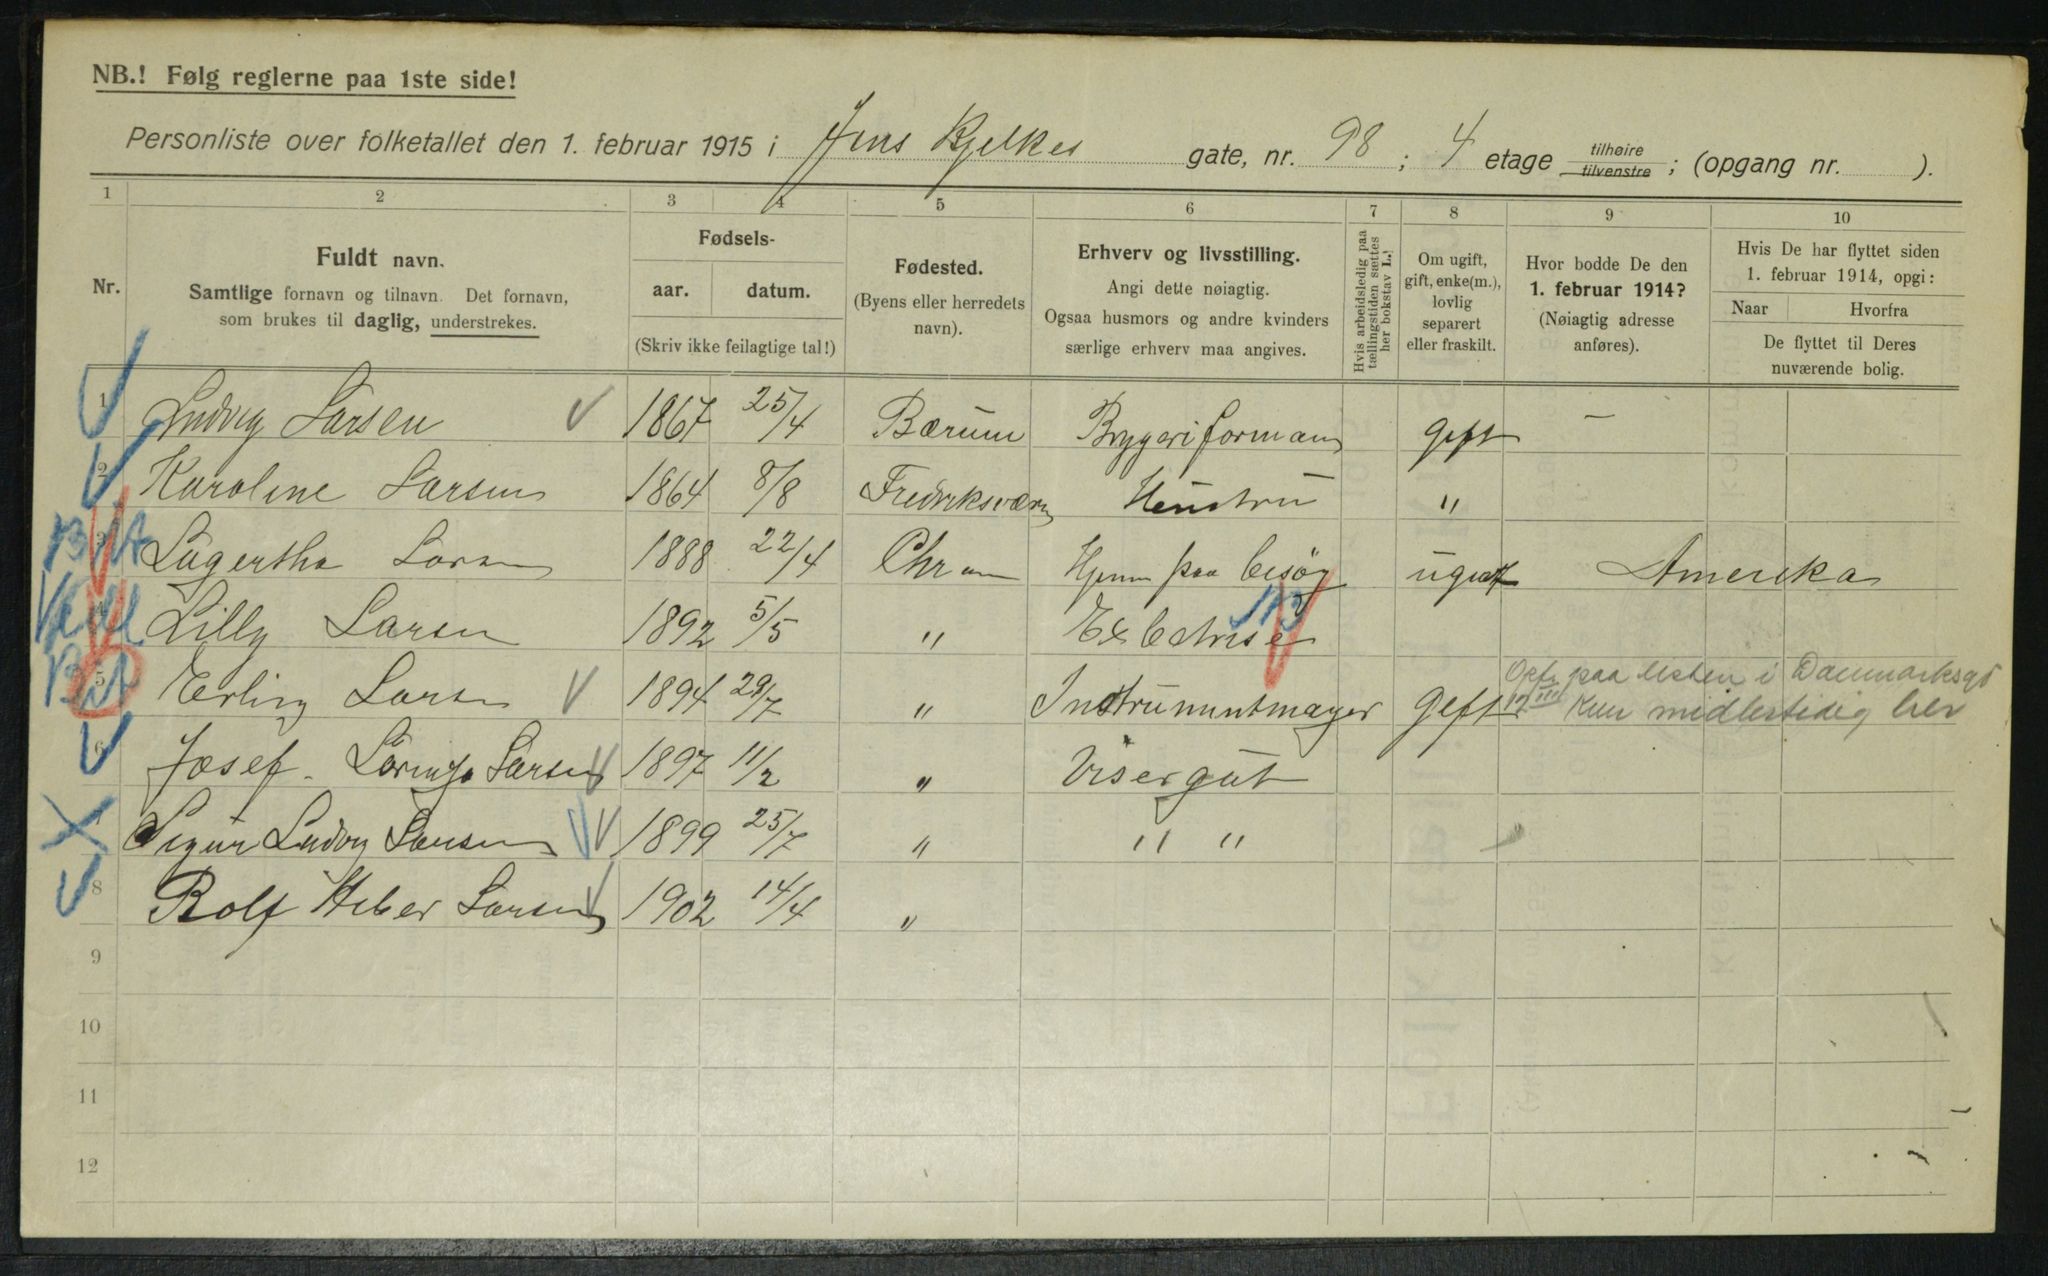 NB.! Følg reglerne paa 1ste side!
Personliste over folketallet den 1. februar 1915 i Jens Bjelkes gate, nr. 98 ; 4 etage tilhøire / tilvenstre ; (opgang nr. ).
1 2 3 4 5 6 7 8 9 10
Nr.
Fuldt navn.
Samtlige fornavn og tilnavn. Det fornavn,
som brukes til daglig, understrekes.
Fødsels-
aar. datum.
(Skriv ikke feilagtige tal!)
Fødested.
(Byens eller herredets
navn).
Erhverv og livsstilling.
Angi dette nøiagtig.
Ogsaa husmors og andre kvinders
særlige erhverv maa angives.
Hvis arbeidsledig paa
tællingstiden sættes
her bokstav L.
Om ugift,
gift, enke(m.),
lovlig
separert
eller fraskilt.
Hvor bodde De den
1. februar 1914?
(Nøiagtig adresse
anføres).
Hvis De har flyttet siden
1. februar 1914, opgi:
Naar Hvorfra
De flyttet til Deres
nuværende bolig.
1 Ludvig Larsen 1867 25/4 Bærum Bryggeriformann gift –
2 Karoline Larsen 1864 8/8 Fredriksværn Hustru "
3 Lagertha Larsen 1888 22/4 Chr an Hjem paa besøg ugift Amerika
4 Lilly Larsen 1892 5/5 "
5 Erling Larsen 1894 29/7 " Instrumentmager gift
Opf. paa listen i Danmarksgt
Kun midlertidig her
6 Josef Larsen 1897 11/2 " Visergut
7 Sigur Ludvig Larsen 1899 25/7 " " "
8 Rolf Heber Larsen 1902 14/4 "
9
10
11
12